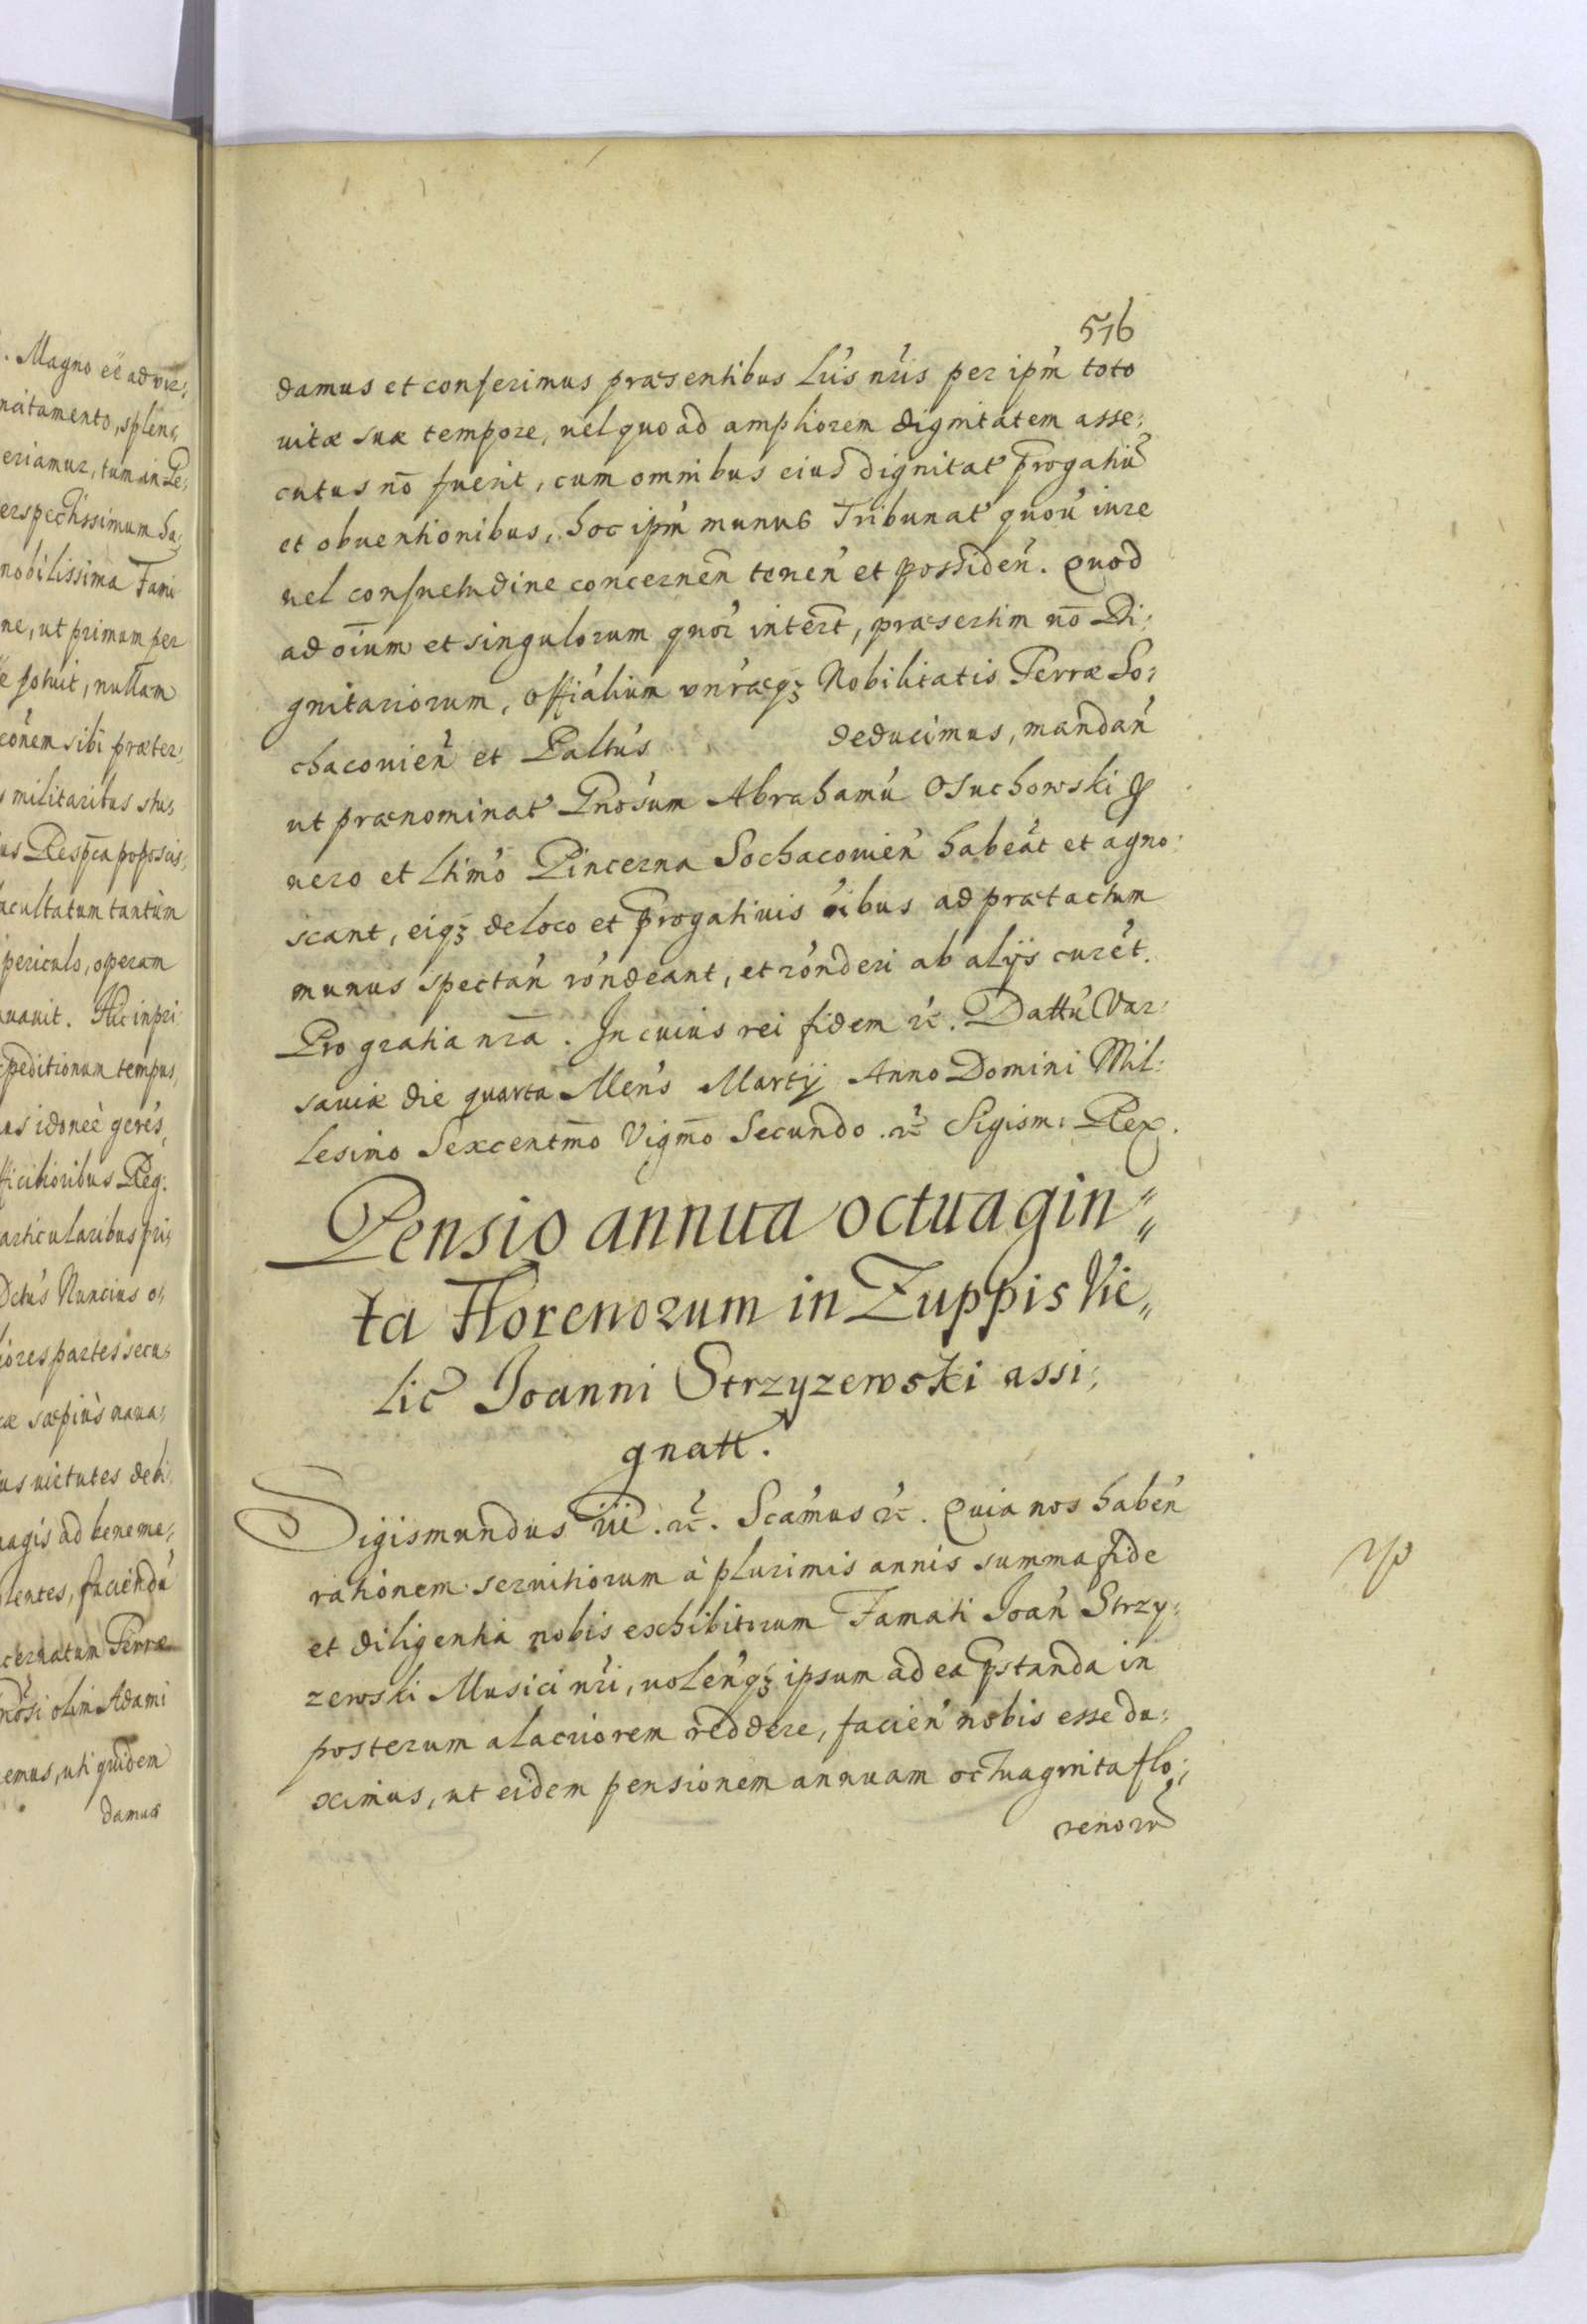 . Magno eë ad vir:
ncitamento, splen:
eriamur, tum in Re:
erspectissimum ha:
nobilissima Fami
ne, ut primum per
e potuit, nullam
conem sibi præter:
militaribus stu:
us Respca poposcis:
acultatum tantùm
periculo, operam
nauit. Hic inpri
peditionum tempus,
us idoneè gerés,
fficilioribus Reg.
articularibus pri:
Dctus Nuncius o:
iores partes secu:
æ sæpiùs naua:
us virtutes debi
magis ad beneme:
lentes, faciendu
cernatum Terræ
nosi olim Adami
emus, uti quidem
damus
516
damus et conferimus præsentibus Lris nris per ipm toto
uitæ suæ tempore, uel quo ad ampliorem dignitatem asse:
cutus nō fuerit, cum omnibus eius dignitat prrogatiu
et obuentionibus, hoc ipm munus Tribunat quou iure
uel consuetudine concernen tenen et possiden. Quod
ad oium et singulorum quor intert, præsertim nō Di:
gnitariorum, offialium unræq₃ Nobilitatis Terræ So:
chacouien et Paltus deducimus, mandan
ut prænominat Gnosum Abrahamu Osuchowski p
uero et Ltimo Pincerna Sochacouien habeat et agno:
scant, eiq₃ de loco et prrogatiuis oibus ad prætactum
munus spectan rondeant, et ronderi ab alijs curet.
Pro gratia nra. In cuius rei fidem etc. Dattu Var:
sauiæ die quarta Mens Martij Anno Domini Mil:
lesimo Sexcentmo Vigmo Secundo. etc Sigism: Rex.
Pensio annua octuagin:
ta Florenorum in Zuppis Vie:
lic Joanni Strzyzewski assi:
gnatt.
Sigismundus iii. etc. Scamus etc. Quia nos haben
rationem seruitiorum à plurimis annis summa fide
et diligentia nobis exhibitorum Famati Joan Strzy:
zewski Musici nri, uolenq₃ ipsum ad ea pstanda in
posterum alacriorem reddere, facien nobis esse du:
ximus, ut eidem pensionem annuam octuaginta flo:
renoru